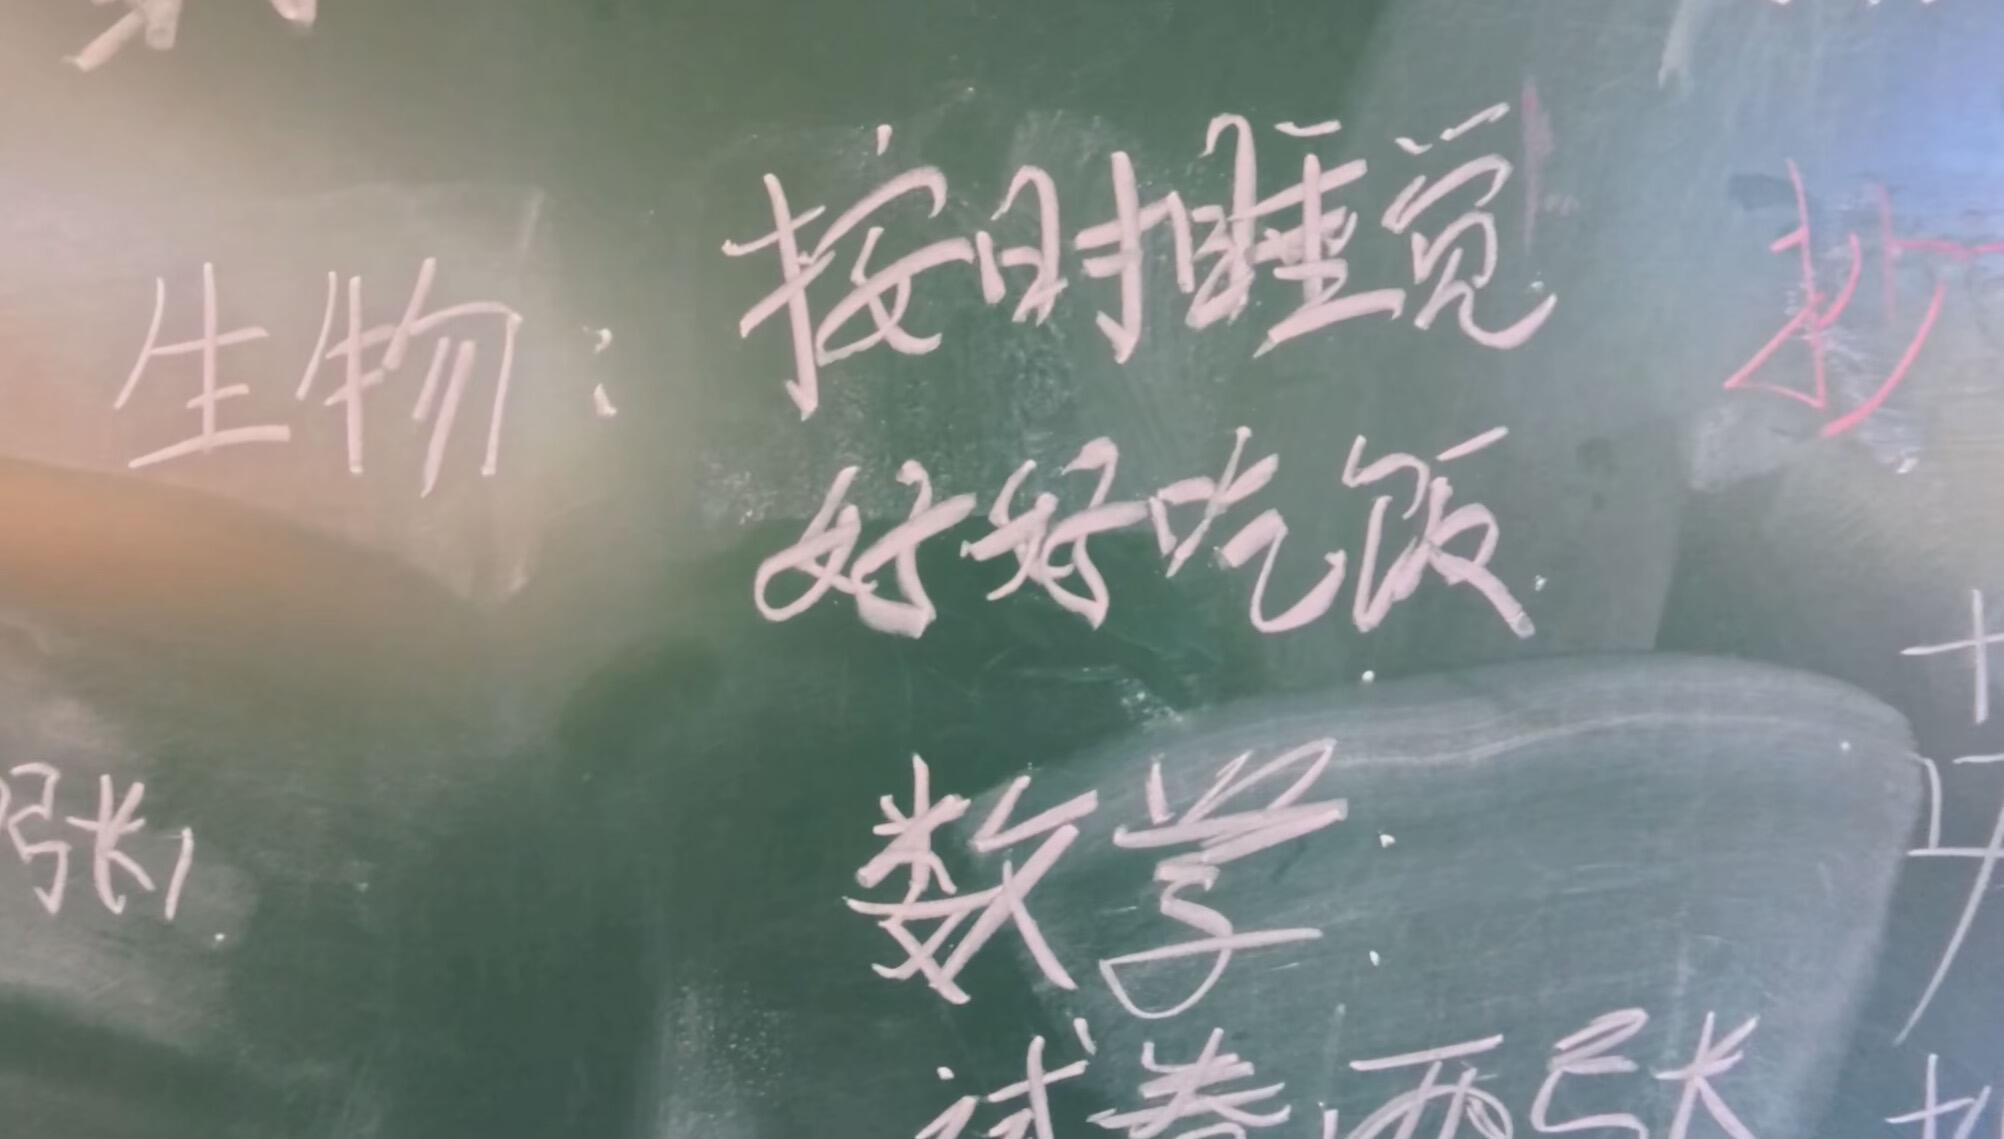 生物:
按时睡觉
好好吃饭
张,
数学:
试卷两张